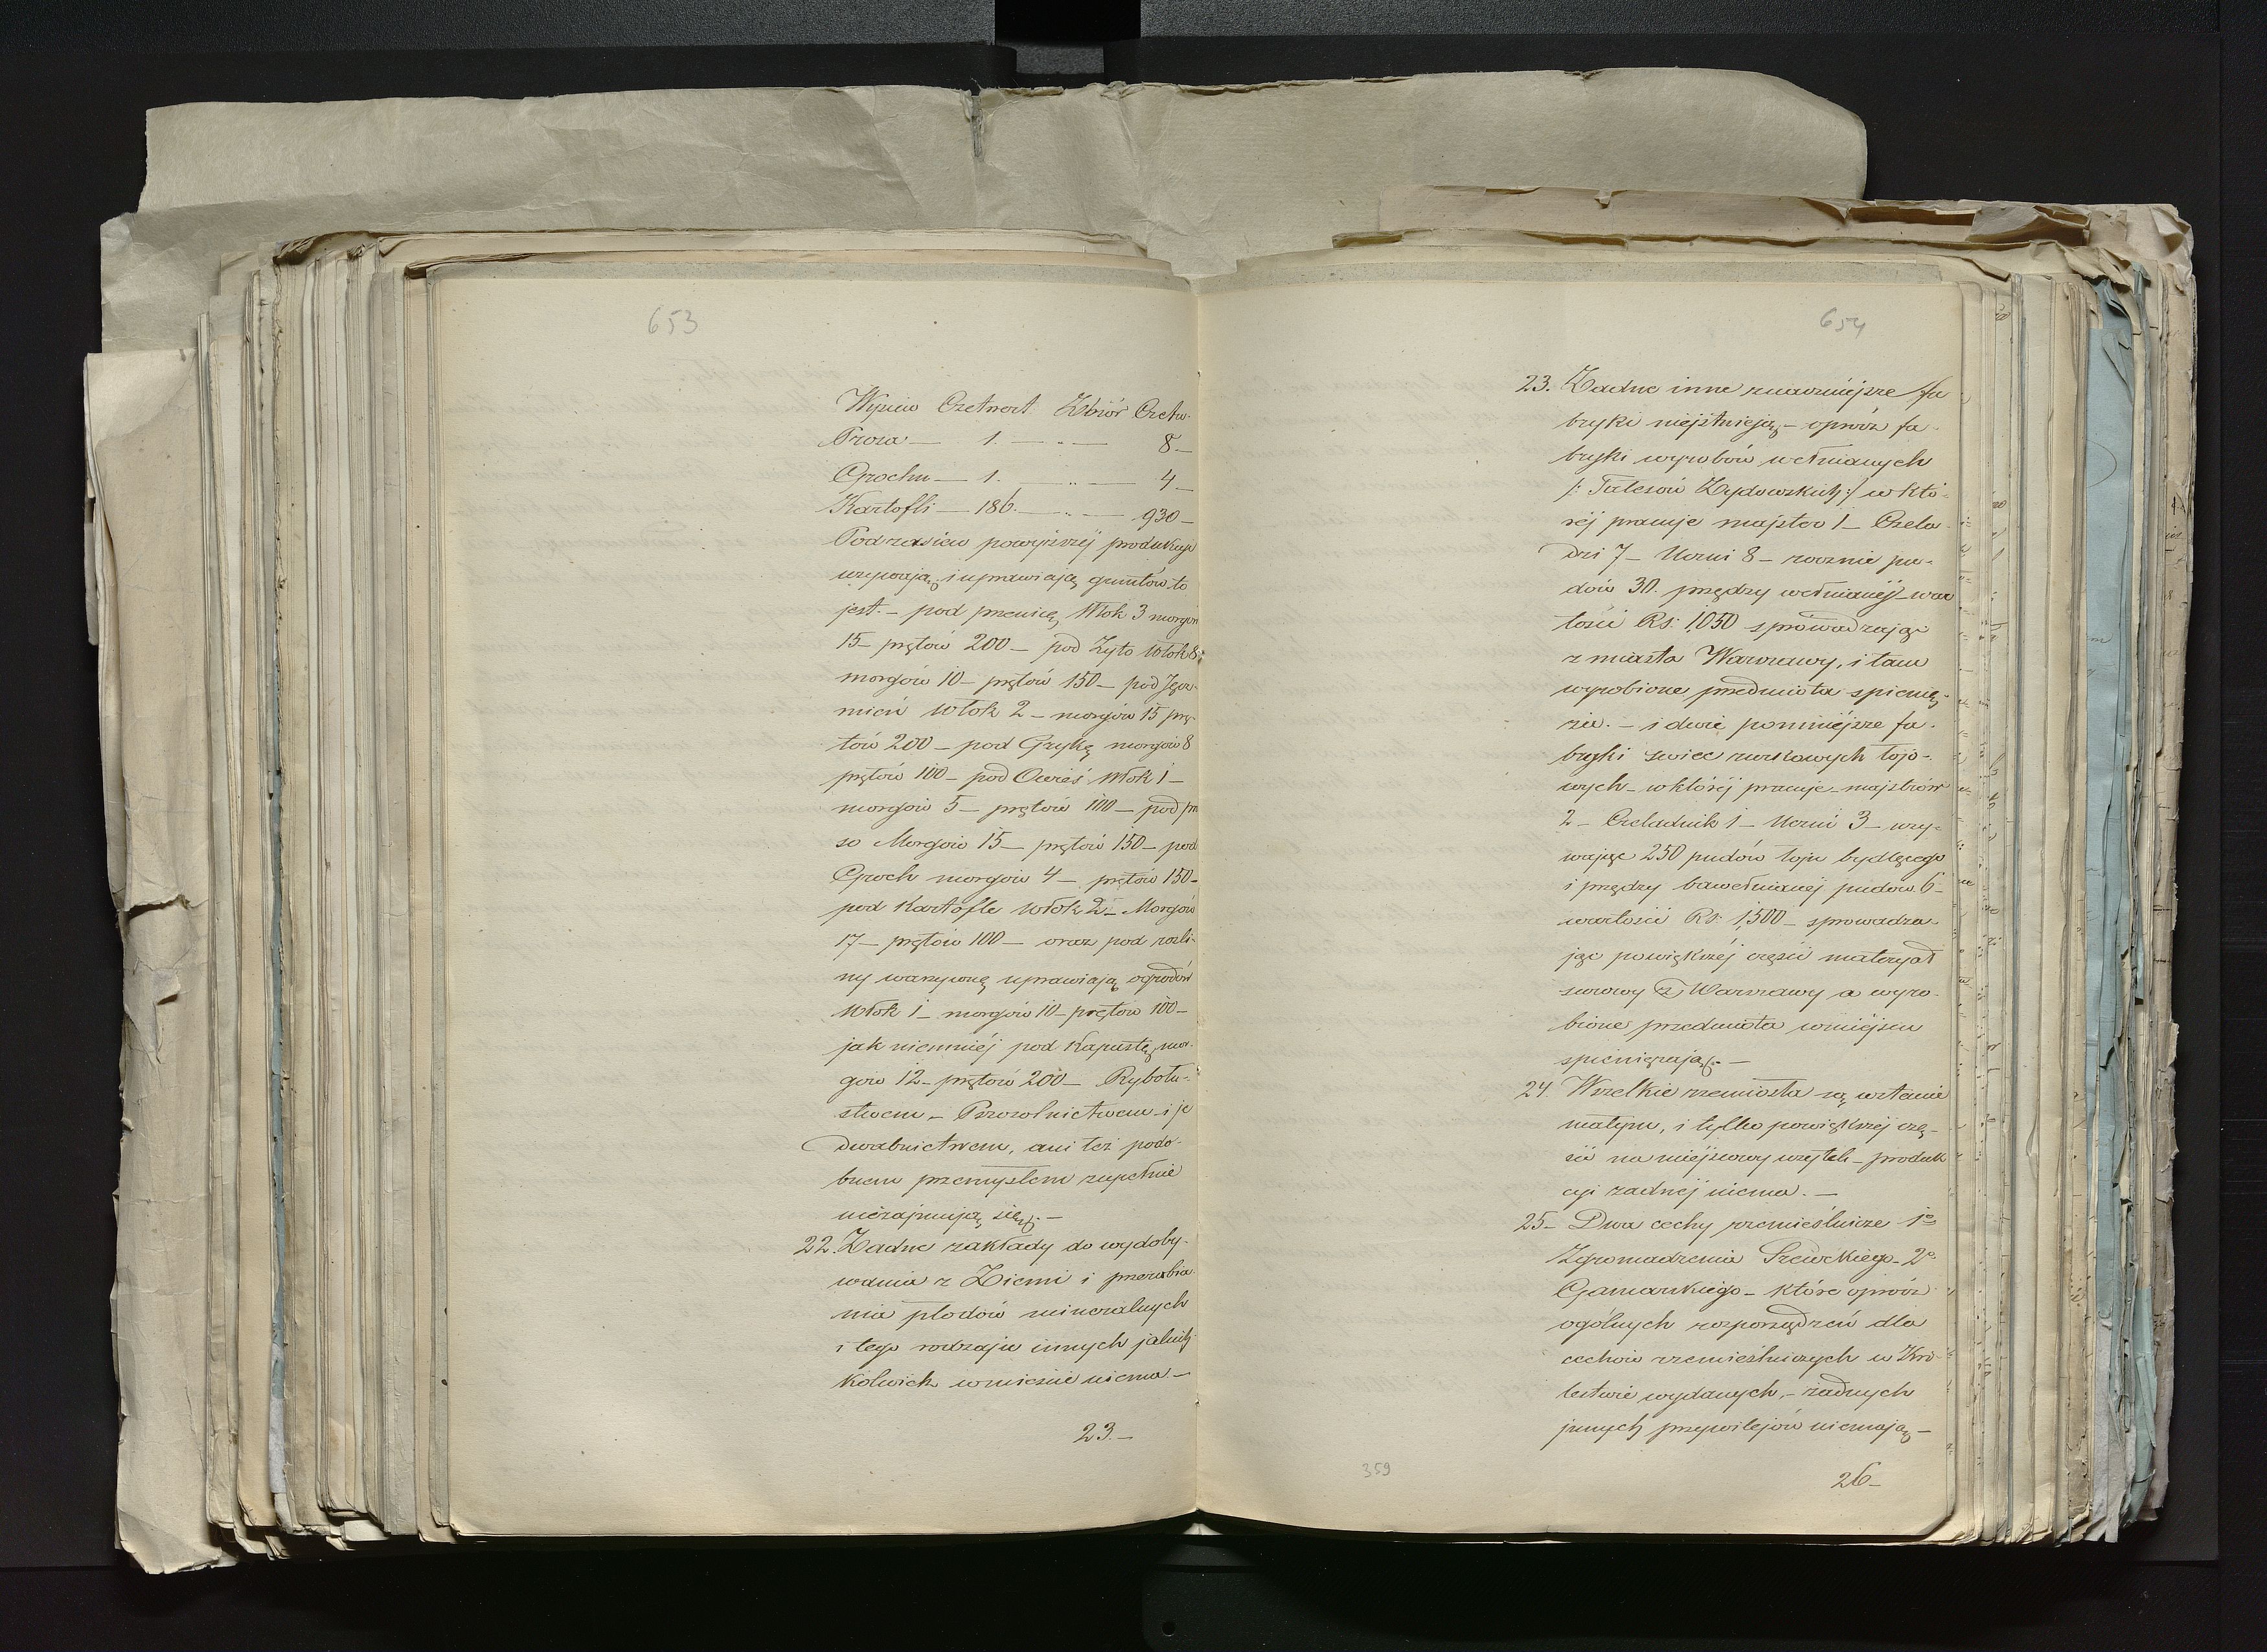 653
Wysiew Czetwert Zbiór Czetw.
Prosa — 1. — „ — 8 —
Grochu — 1. — „ — 4 —
Kartofli — 186. — „ — 930 —
Pod zasiew powyższéj produkcyi
używają i uprawiają gruntów to
jest. — pod pszenicę Włok 3 morgów
15 — prętów 200 — pod Żyto Włok 8
morgów 10 — prętów 150 — pod Jęcz-
mień Włok 2 — morgów 15 prę-
tów 200 — pod Grykę morgów 8
prętów 100 — pod Owies Włok 1 —
morgów 5 — prętów 100 — pod pro
so Morgów 15 — prętów 150 — pod
Groch morgów 4 — prętów 150 —
pod Kartofle Włok 2 — Morgów
17 — prętów 100 — oraz pod rośli-
ny warzywne uprawiają ogrodów
Włok 1 — morgów 10 — prętów 100 —
jak niemniéj pod Kapustę mor-
gów 12 — prętów 200 — Rybołu-
stwem — Pszczolnictwem — i je
dwabnictwem, ani też podo-
bnem przemysłem zupełnie
niezajmują się. —
22. Żadne zakłady do wydoby-
wania z Ziemi i przerabia
nia płodów mineralnych
i tego rodzaju innych jakich
kolwiek w mieście niema. —
23 —
654
23. Żadne inne znaczniejsze fa
bryki nieistnieją — oprócz fa-
bryki wyrobów wełnianych
/: Talesów Żydowskich :/ w któ-
réj pracuje majster 1 — Czela-
dzi 7 — Uczni 8 — rocznie pu-
dów 30. przędzy wełnianéj — war
tości Rs: 1,050 sprowadzając
z miasta Warszawy, i tam
wyrobione przedmiota spienię-
ża. — i dwie pomniéjsze fa-
bryki świec zwykowych łojo-
wych — w któréj pracuje — majstrów
2 — Czeladnik 1 — Uczni 3 — uży-
wając 250 pudów łoju bydlęcego
i przędzy bawełnianéj pudów 6 —
wartości Rs: 1,500 — sprowadza-
jąc powiększéj części materyał
surowy z Warszawy a wyro-
bione przedmiota w miejscu
spieniężają. —
24. Wszelkie rzemiosła są w stanie
małym, i tylko powiększéj czę-
ści na miejscowy użytek — produk
cyi żadnéj niema. —
25 — Dwa cechy rzemieślnicze 1º
Zgromadzenia Szewckiego — 2º
Garncarskiego — które oprócz
ogólnych rozporządzeń dla
cechów rzemieślniczych w Kró-
lestwie wydanych, — żadnych
jnnych przywilejów niemają —
26 —
359